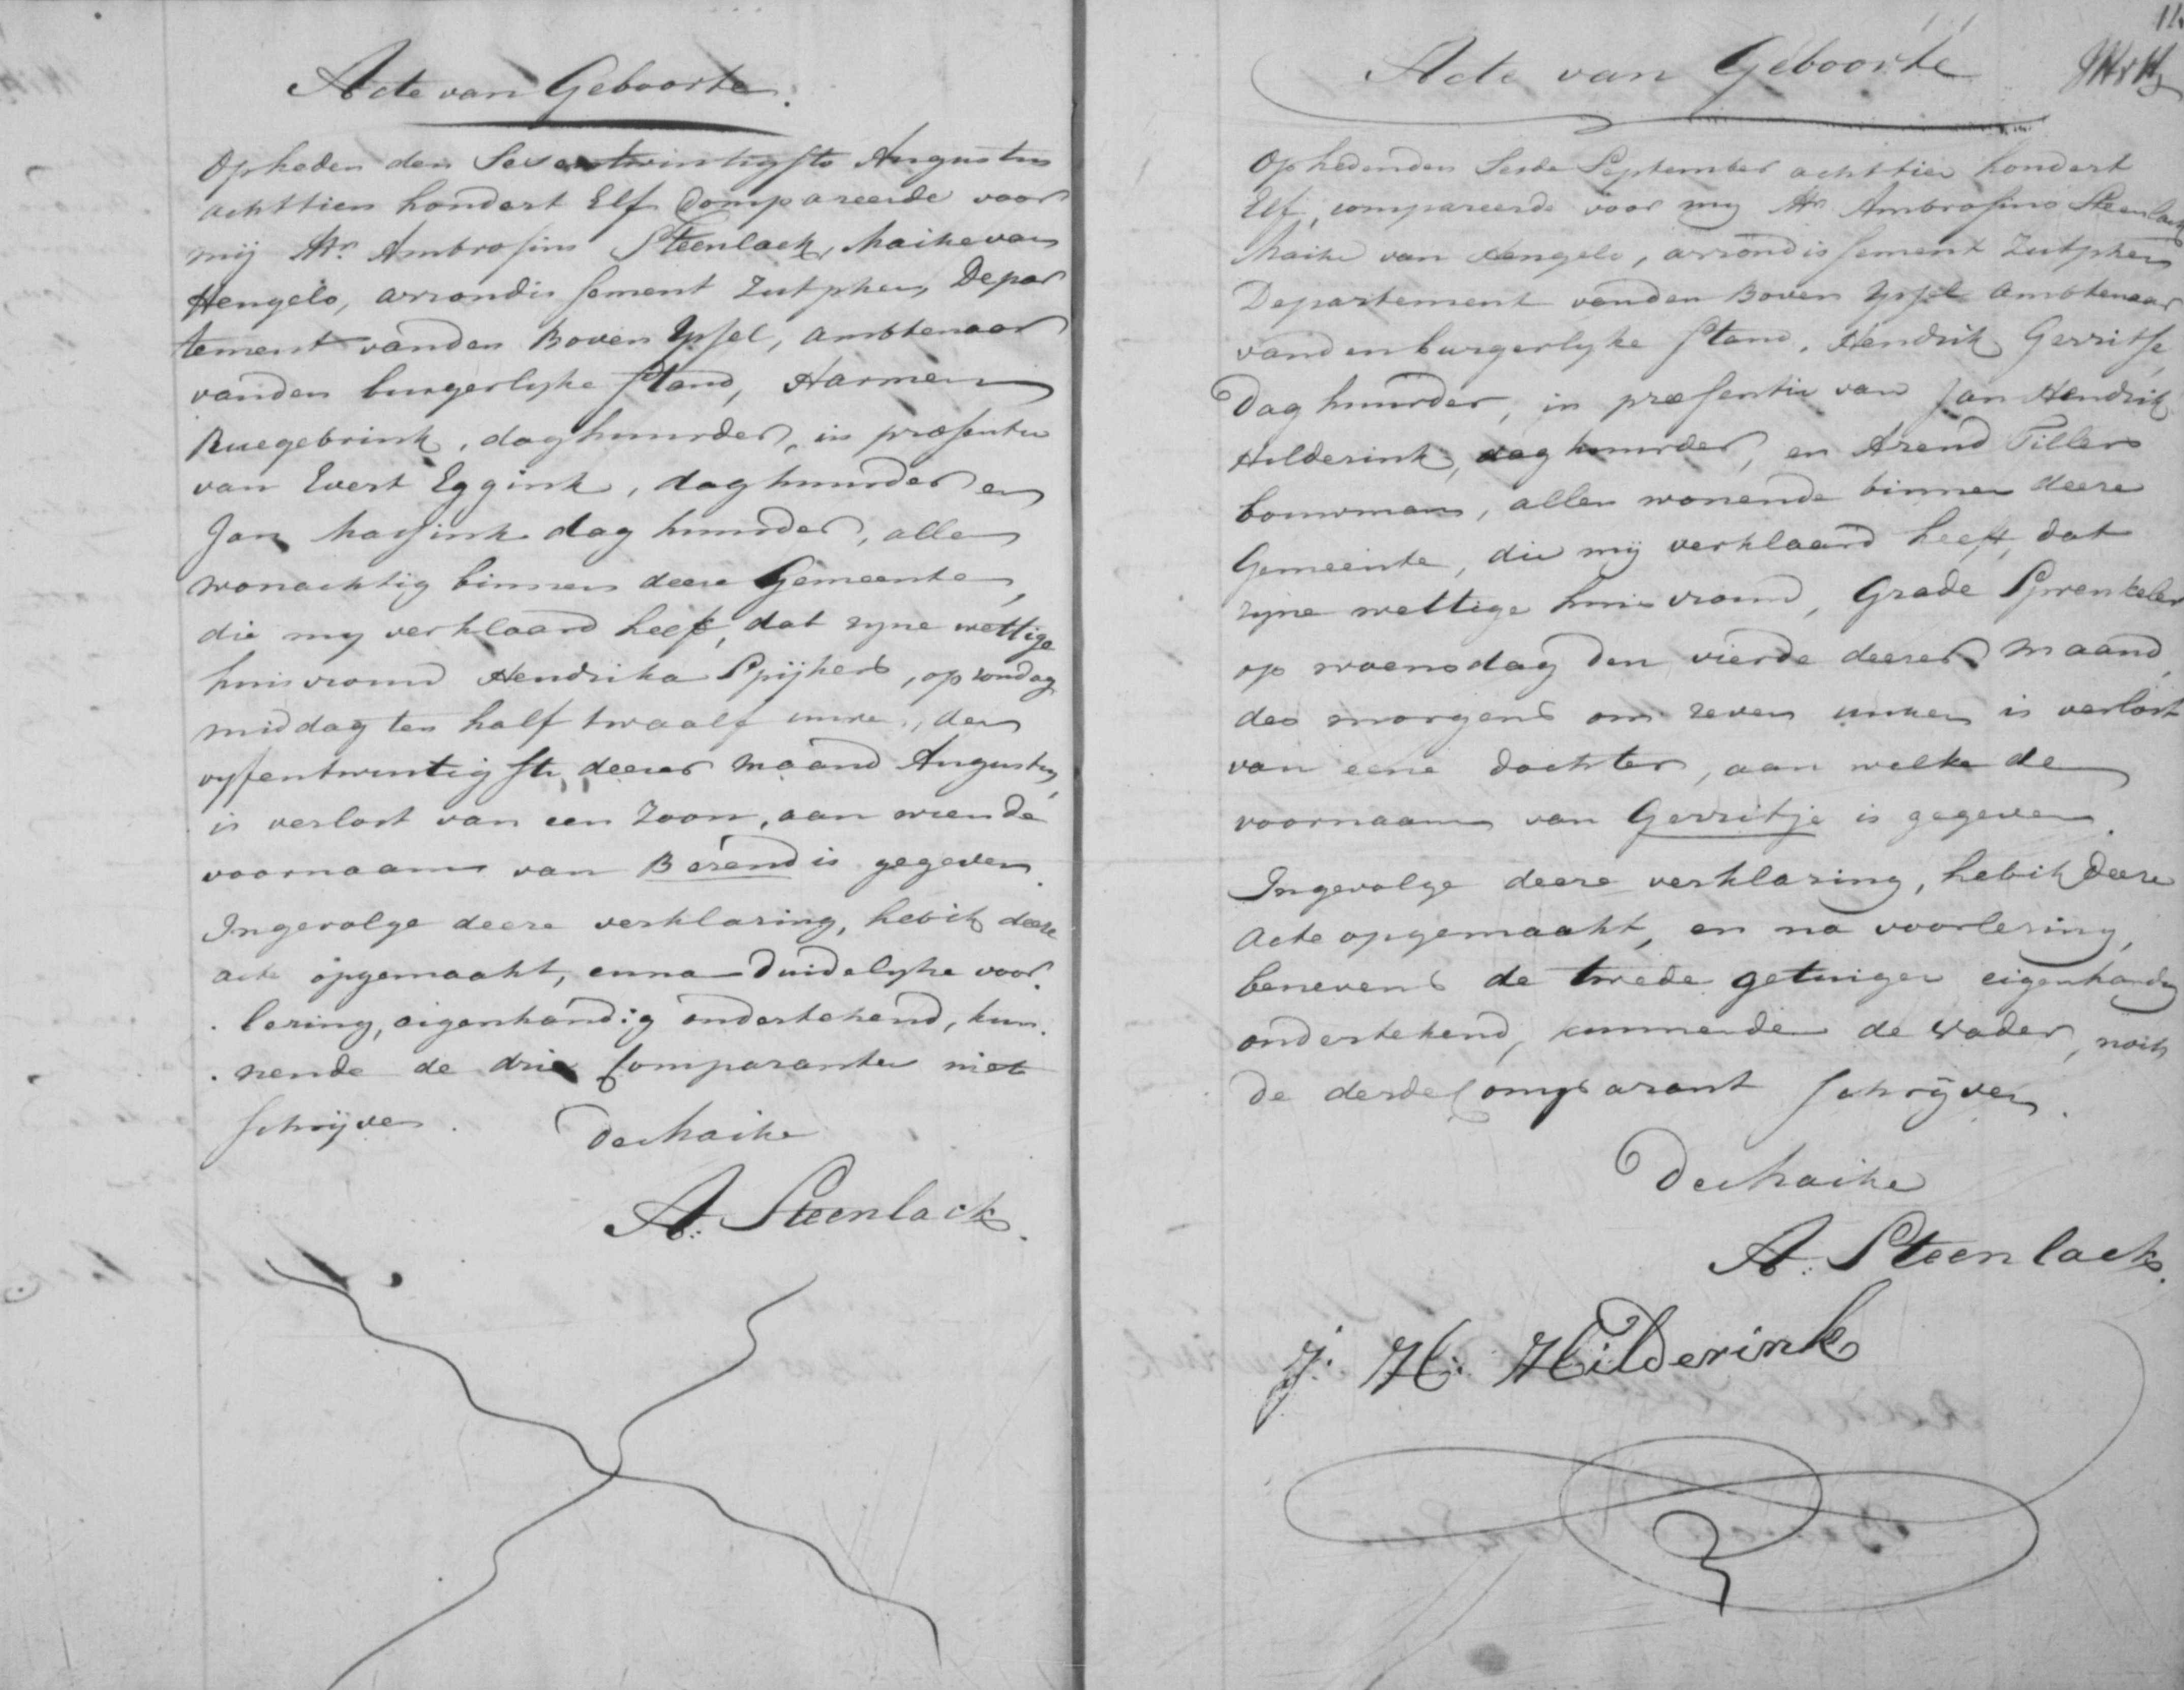 Acte van Geboorte.
Op heden den Sevententwintigste Augustus
achttien hondert Elf Compareerde voor
mij Mr. Ambrosius Steenlack, Maire van
Hengelo, arrondissement Zutphen, Depar
tement van den Boven Yssel, ambtenaar
van den burgerlyke stand, Harmen
Ruegebrink, daghuurder, in præsentie
van Evert Eggink, daghuurder en
Jan dag huurder, allen
wonachtig binnen deere Gemeente,
die my verklaard heeft, dat zyne wettige
huisvrouw Hendrika Spijkers, op zondag
middag ten half twaalf uure, den
vyfentwintigste deeser maand Augustus,
is verlost van een Zoon, aan wien de
voornaam van Berend is gegeven.
Ingevolge deere verklaring, heb ik deere
acte opgemaakt, en na duidelyke voor.
lering, eigenhandig ondertekend, kun.
nende de drie Comparanten niet
schrijven.
De Maire
A. Steenlack.
Acte van Geboorte
Op heden den Sesde September achttien hondert
Elf, compareerde voor my Mr. Ambrosius Steenlack
Maire van Hengelo, arrondissement Zutphen
Departement van den Boven Yssel ambtenaar
van den burgerlyke stand, Hendrik Gerritse,
Daghuurder, in præsentie van Jan Hendrik
Hilderink, daghuurder, en Arend Tillers
bouwman, allen wonende binnen deere
Gemeente, die mij verklaard heeft, dat
zyne wettige huisvrouw, Grade
op woensdag den vierde deeser maand,
des morgens om zeven uuren is verlost
van eene dochter, aan welke de
voornaam van Gerritje is gegeven.
Ingevolge deere verklaring, heb ik deere
Acte opgemaakt, en na voorlesing,
benevens de twede getuigen eigenhandig
ondertekend, kunnende de Vader, noch
de derde Comparant schrijven.
De Maire
A. Steenlack.
J. H. Hilderink